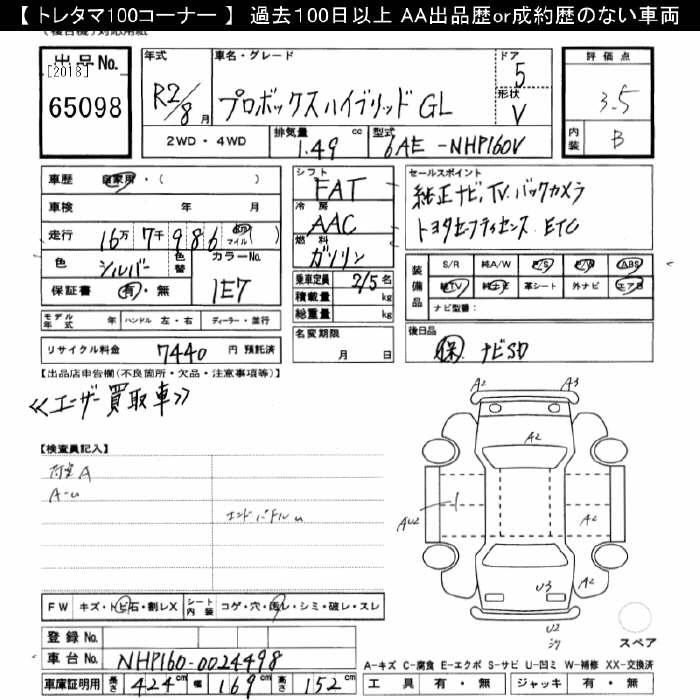 【 トレタマ100コーナー 】 過去100日以上 AA出品歴or成約歴のない車両
出品No.
[2018]
65098
年式
R2/8月
車名・グレード
プロボックスハイブリッド GL
ドア
5
形状
V
評価点
3.5
内装
B
2WD・4WD
排気量
1.49 cc
型式
6AE-NHP160V
車歴 自家用・( )
車検 年 月
走行 16万7千986 km マイル ( )
色 シルバー 色替
カラーNo.
1E7
保証書 有・無
シフト
FAT
冷房
AAC
燃料
ガソリン
乗車定員 2/5名
積載量 kg
総重量 kg
セールスポイント
純正ナビ,TV.バックカメラ
トヨタセーフティセンス ETC
装備品
S/R 純A/W P/S P/W ABS
純TV 純ナビ 革シート 外ナビ エアB
ナビ型番:
モデル年式 年 ハンドル 左・右 ディーラー・並行
リサイクル料金 7440 円 預託済
名変期限
月 日
後日品
保. ナビSD
【出品店申告欄(不良箇所・欠品・注意事項等)】
≪ユーザー買取車≫
【検査員記入】
荷室A
A-U
エンドパドルU
A2 A3
A2
AU2
A2
A2
U3
U2
FW キズ・トビ石・割レX
シート内装 コゲ・穴・汚レ・シミ・破レ・スレ
スペア
登録No.
車台No. NHP160-0024498
車庫証明用 長さ 424cm 幅 169cm 高さ 152cm
A-キズ C-腐食 E-エクボ S-サビ U-凹ミ W-補修 XX-交換済
工具 有・無 ジャッキ 有・無